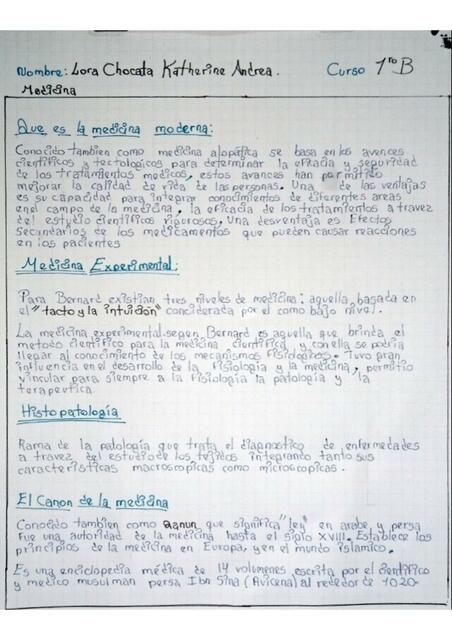 Nombre: Lora Chocata Katherine Andrea. Curso 1ro B
Medicina
Que es la medicina moderna:
Conocido tambien como medicina alopática se basa en los avences
científicos y tectologicos para determinar la eficacia y seguridad
de los tratamientos medicos, estos avances han permitido
mejorar la calidad de vida de las personas. Una de las ventajas
es su capacidad para integrar conocimientos de diferentes areas
en el campo de la medicina, la eficacia de los tratamientos a travez
del estudio científicos rigurosos, Una desventaja es Efectos
Secundarios de los medicamentos que pueden causar reacciones
en los pacientes
Medicina Experimental:
Para Bernard existian tres niveles de medicina: aquella basada en
el "tacto y la intuición" conciderada por el como bajo nivel.
La medicina experimental segen Bernard es aquella que brinda el
metodo científico para la medicina científica, y con ella se podria
llegar al conocimiento de los mecanismos Fisiologicos. Tuvo gran
influencia en el desarrollo de la Fisiologia y la medicina, permitio
vincular para siempre a la Fisiologia la patologia y la
terapeutica.
Histopatología
Rama de la patología que trata el diagnostico de enfermedades
a travez del estudio de los tejidos integrando tanto sus
caracteristicas macroscopicas como microscopicas.
El Canon de la medicina
Conocido tambien como Qanun que significa "ley" en arabe y persa
Fue una autoridad de la medicina hasta el siglo XVIII. Establece los
principios de la medicina en Europa, y en el mundo islamico.
Es una enciclopedia médica de 14 volumenes escrita por el científico
y medico musulman persa Ibn Sina (Avicena) al rededor de 1020-